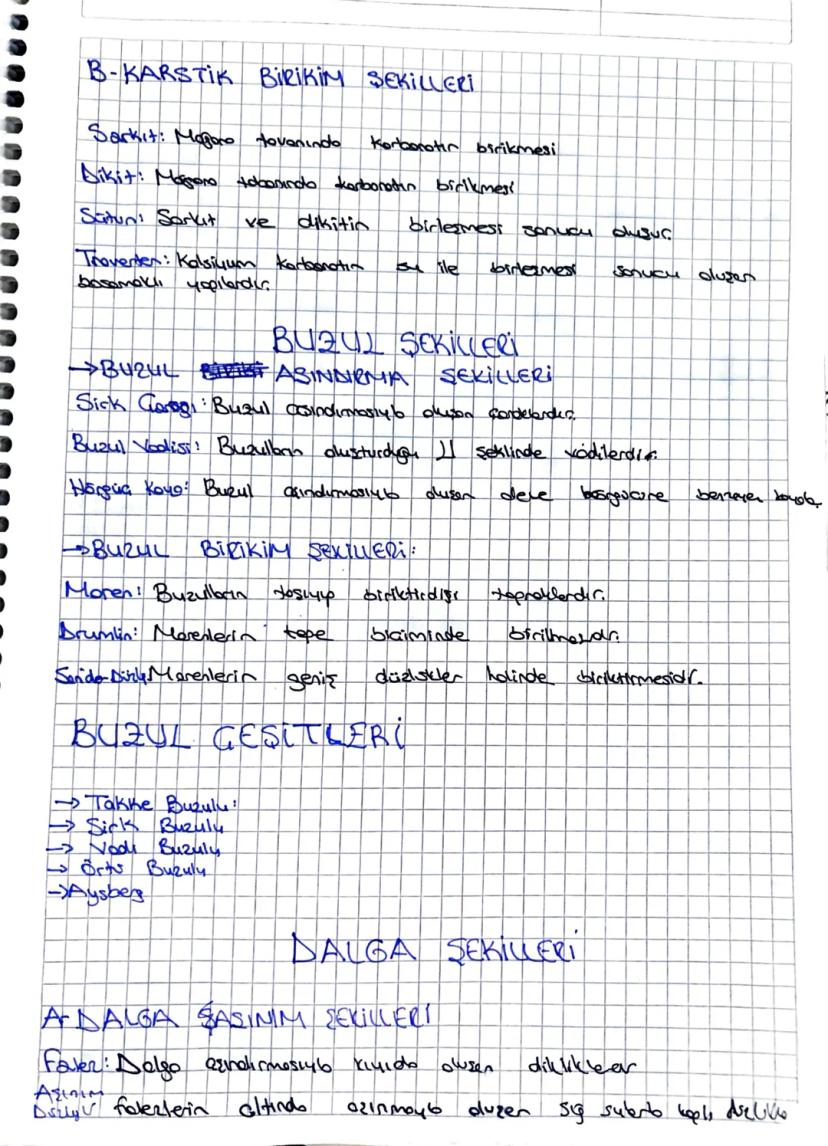 B-KARSTİK BİRİKİM ŞEKİLLERİ
Sarkıt: Mağara tavanında karbonatın birikmesi
Dikit: Mağara tabanında karbonatın birikmesi
Sütun: Sarkıt ve dikitin birleşmesi sonucu oluşur.
Traverten: Kalsiyum karbonatın su ile birleşmesi sonucu oluşan
basamaklı yapılardır.
BUZUL ŞEKİLLERİ
→BUZUL AŞINDIRMA ŞEKİLLERİ
Sirk : Buzul aşındırmasıyla oluşan
Buzul Vadisi: Buzulların oluşturduğu U şeklinde vadilerdir.
Hörgüç Kaya: Buzul aşındırmasıyla oluşan deve benzeyen
→BUZUL BİRİKİM ŞEKİLLERİ:
Moren: Buzulların taşıyıp biriktirdiği topraklardır.
Drumlin: Morenlerin tepe biçiminde
Sander Düzlüğü Morenlerin geniş düzlükler halinde biriktirmesidir.
BUZUL ÇEŞİTLERİ
→ Takke Buzulu:
→ Sirk Buzulu
→ Vadi Buzulu
→ Örtü Buzulu
→Aysberg
DALGA ŞEKİLLERİ
A-DALGA AŞINIM ŞEKİLLERİ
Falez: Dalga aşındırmasıyla kıyıda oluşan diklikler
Aşınım
Düzlüğü falezlerin altında aşınmayla oluşan sığ sularla kaplı düzlük